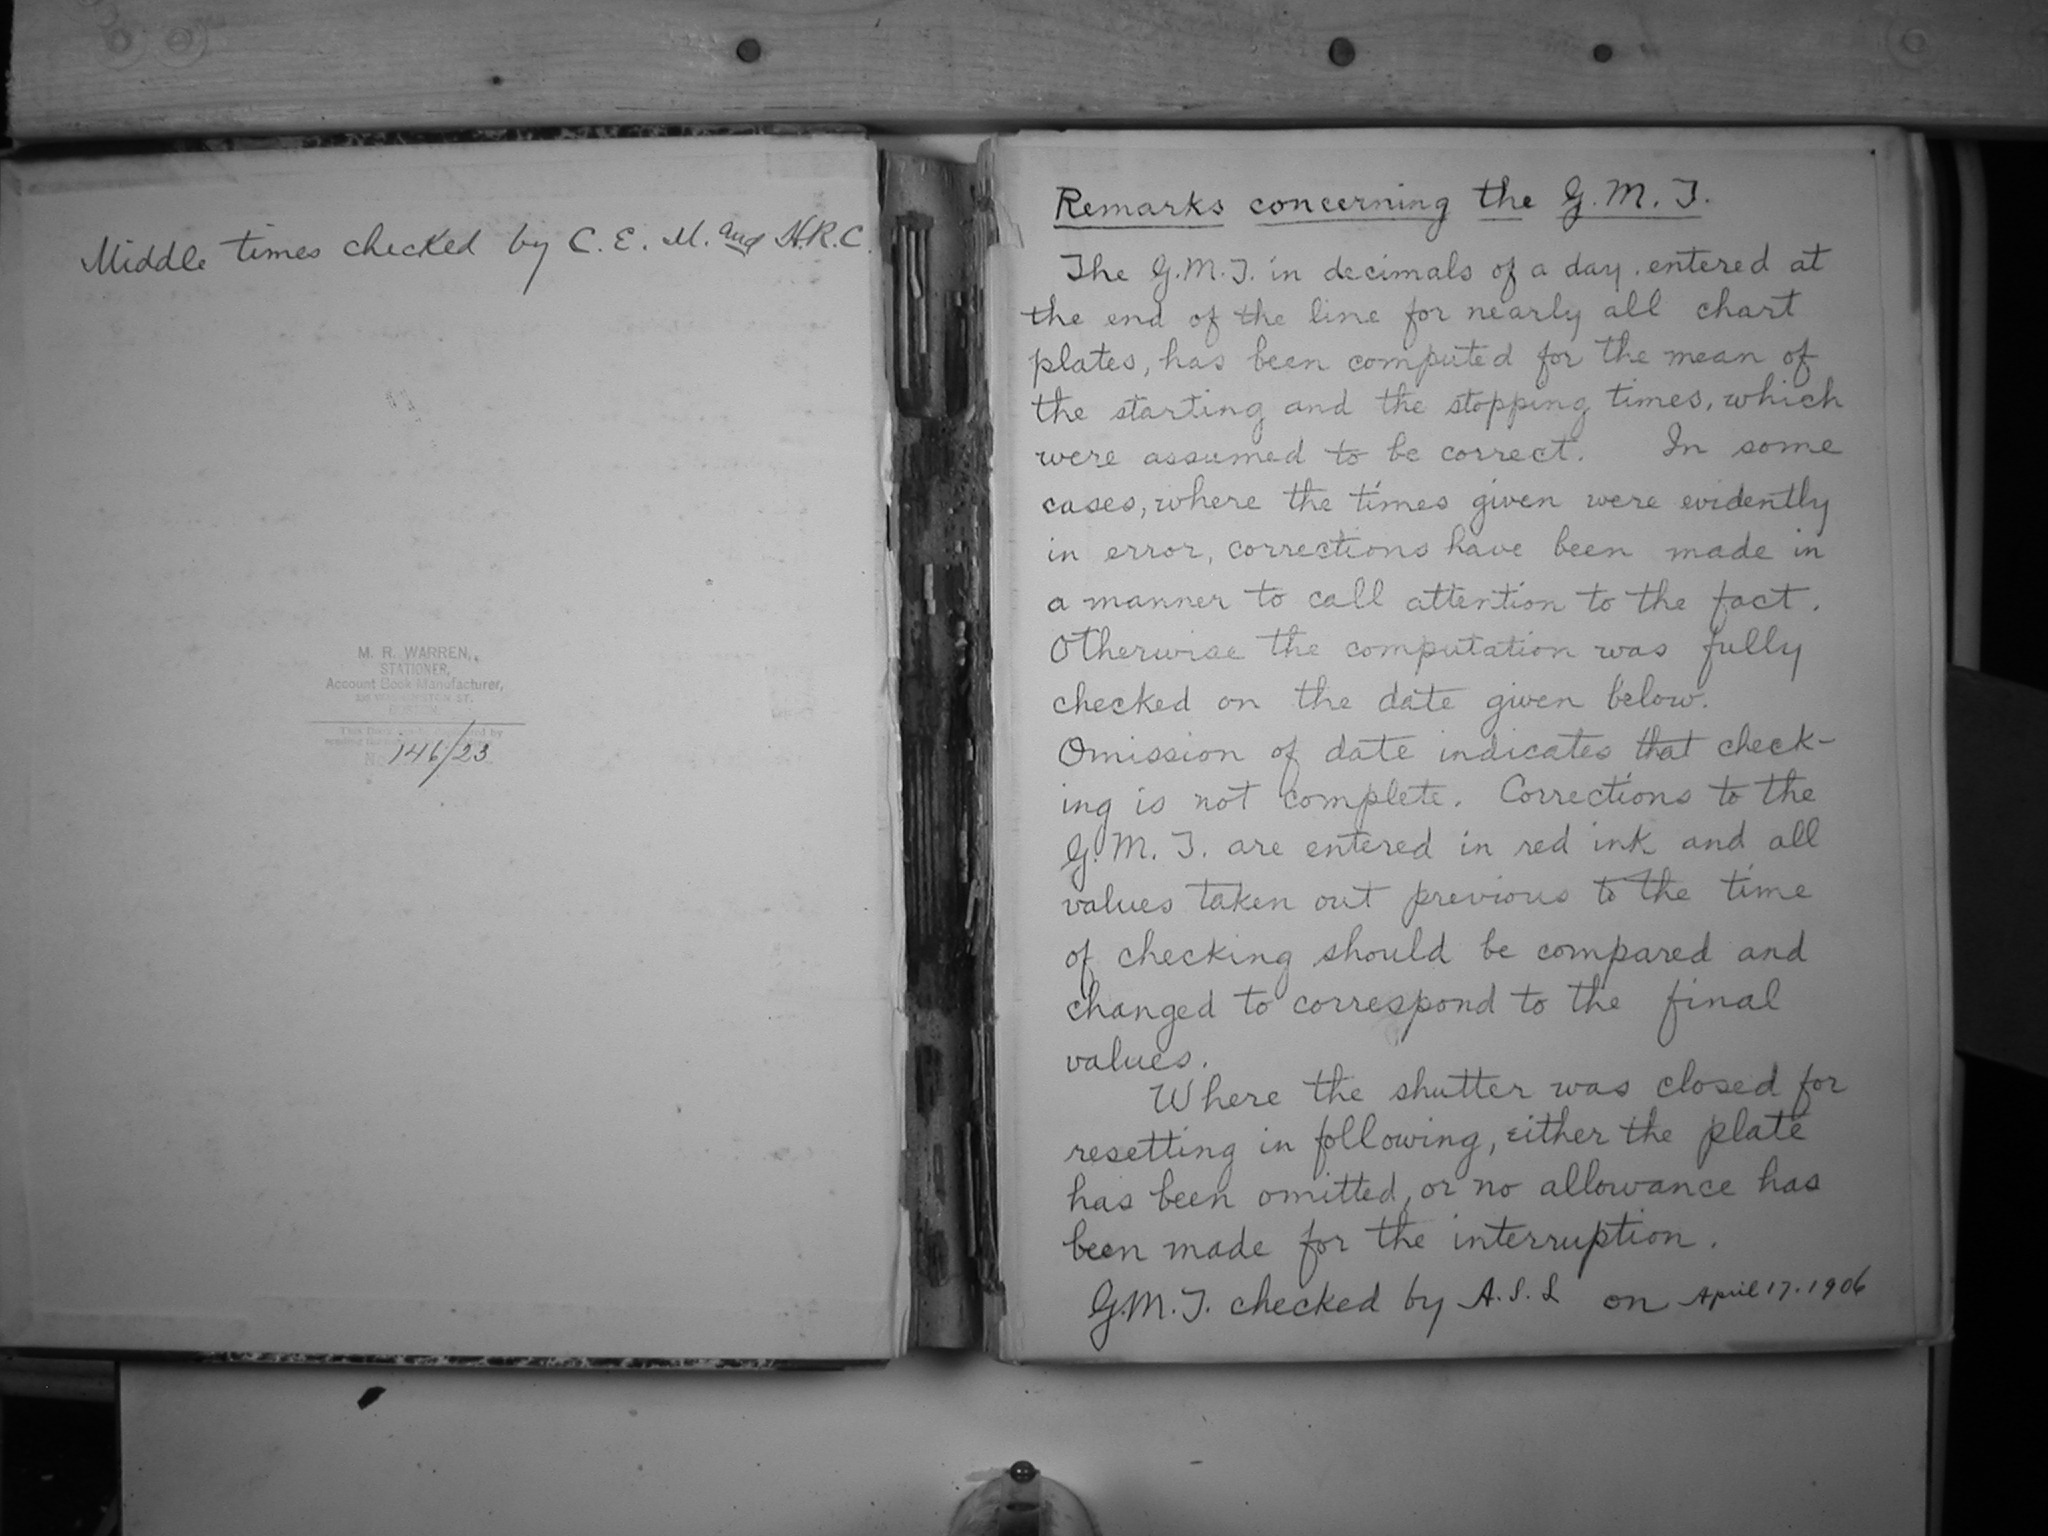 Middle times checked by C. E. M. and H.R.C.
M. R. WARREN,
STATIONER,
Account Book Manufacturer,
BOSTON.
This Book can be duplicated by
No 146/23
Remarks concerning the G. M. T.
The G.M.T. in decimals of a day, entered at
the end of the line for nearly all chart
plates, has been computed for the mean of
the starting and the stopping times, which
were assumed to be correct. In some
cases, where the times given were evidently
in error, corrections have been made in
a manner to call attention to the fact.
Otherwise the computation was fully
checked on the date given below.
Omission of date indicates that check-
ing is not complete. Corrections to the
G. M. T. are entered in red ink and all
values taken out previous to the time
of checking should be compared and
changed to correspond to the final
values.
Where the shutter was closed for
resetting in following, either the plate
has been omitted, or no allowance has
been made for the interruption.
G.M.T. checked by A.S.L on April 17. 1906